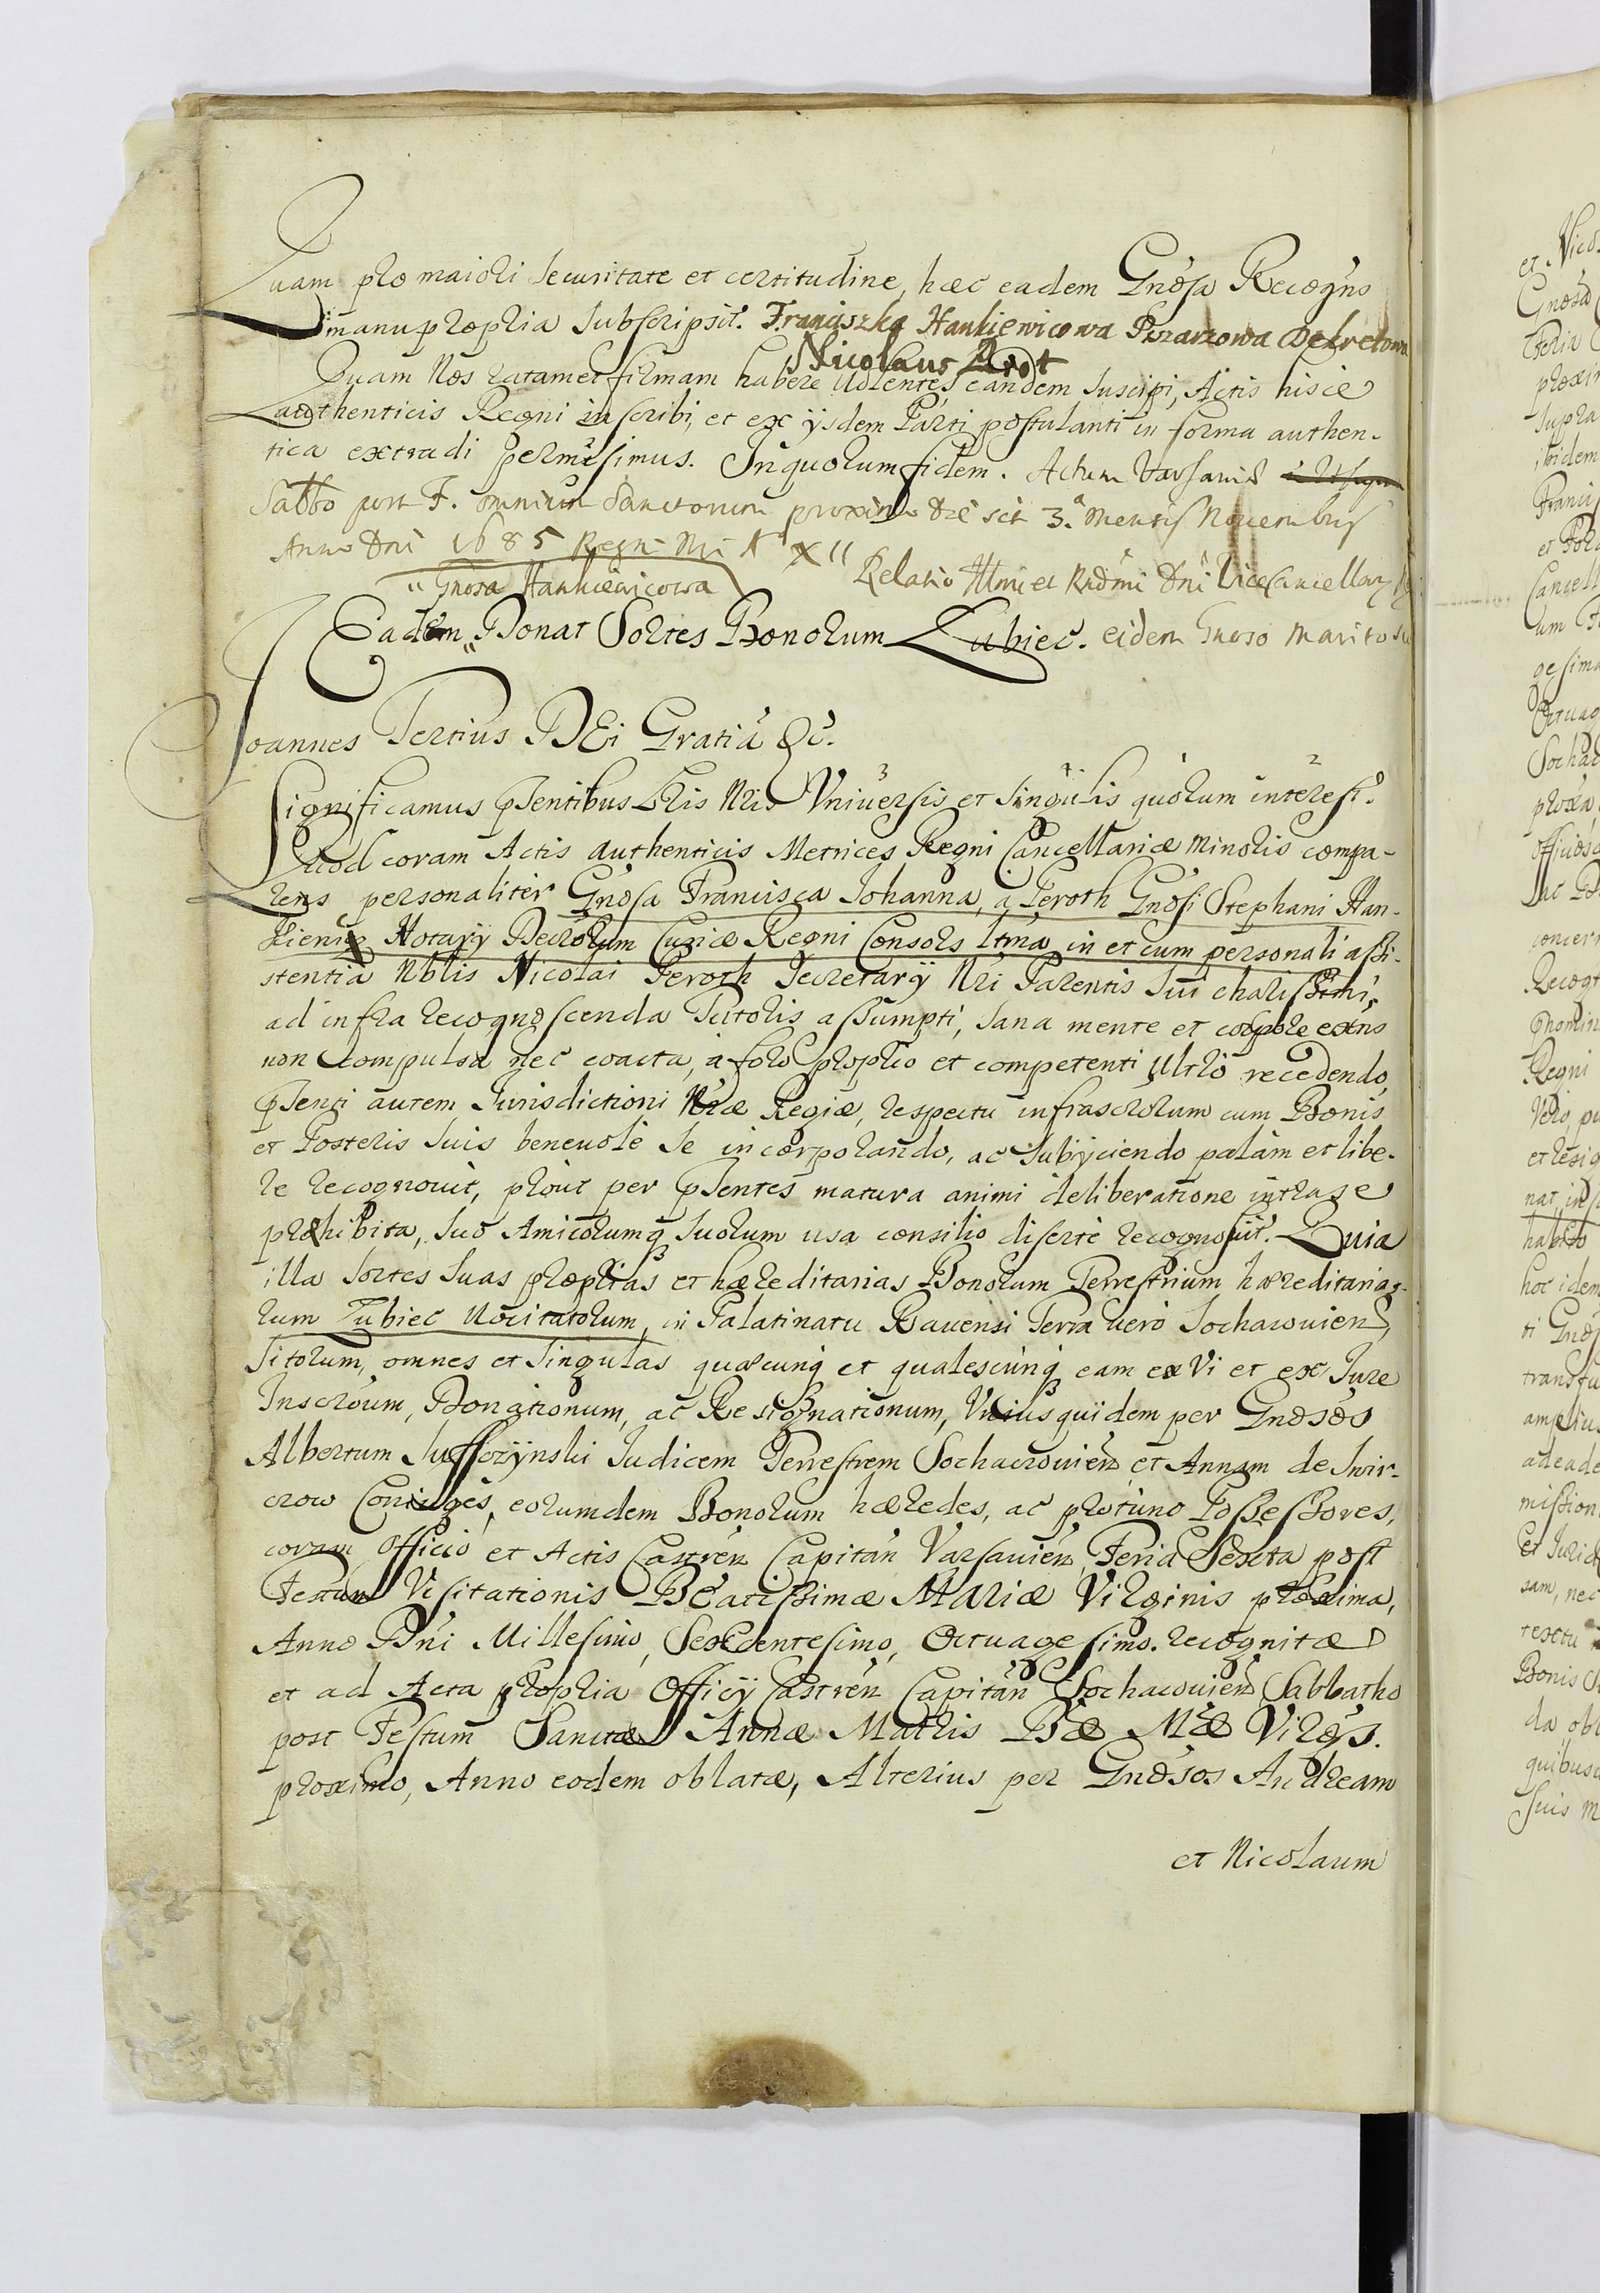 Quam pro maiori securitate et certitudine, hæc eadem Gnosa Recogns
manu propria subscripsit. Franciszka Hankiewicowa Pisarzowa Dekretowa
Nicolaus Perot
Quam Nos ratam et firmam habere volentes, eandem suscipi, Actis hisce
authenticis Regni inscribi, et ex ijsdem Parti postulanti in forma authen-
tica extradi permisimus. In quorum fidem. Actum Varsaviæ
Sabbo post F. omnium Sanctorum proximo die scit 3.a mensis Novembris
Anno Dni 1685 Regni Nri XII
Relatio Illmi et Rndmi Dni Vicecancellary
"Gnosa Hankiewicowa
Eadem "Donat Sortes Bonorum Lubiec. eidem Gnoso marito suo
Joannes Tertius DEi Gratiâ &c.
Significamus pntibus Lris Nris Vniversis et singulis quorum interest.
Quod coram Actis authenticis Metrices Regni Cancellariæ minoris compa-
rens personaliter Gnosa Francisca Johanna, a Peroth Gnosi Stephani Han-
kiewicz Notarÿ Decrorum Curiæ Regni Consors ltma in et cum personali assi-
stentia Nblis Nicolai Peroth Secretarÿ Nri Parentis sui charissimi,
ad infra recognoscenda Tutoris assumpti, sana mente et corpore exns
non compulsa nec coacta, a foro proprio et competenti Vltro recedendo,
pnti autem Jurisdictioni Nræ Regiæ, respectu infrascrorum cum Bonis
et Posteris suis benevolè se incorporando, ac subÿciendo palàm et libe-
re recognovit, prout per pntes matura animi deliberatione intra se
præhibita, suo Amicorumq suorum usa consilio disertè recognoscit. Quia
illa sortes suas proprias et hæreditarias Bonorum Terrestrium hæreditario-
rum Lubiec vocitatorum, in Palatinatu Ravensi Terra verò Sochaczovien
sitorum, omnes et singulas quascunq et qualescunq eam ex Vi et ex Jure
Inscroum, Donationum, ac Resignationum, Vnius quidem per Gnosos
Albertum Suffczÿnski Judicem Terrestrem Sochaczovien et Annam de Swir-
czow Coniuges, eorumdem Bonorum hæredes, ac protunc Possessores,
coram Officio et Actis Castren Capitan Varsavien Feria Sexta post
Festum Visitationis BEatissimæ MARiæ Virginis proxima,
Anno Dni Millesimo, Sexcentesimo, Octuagesimo. recognitæ
et ad Acta propria Officÿ Castren Capitan Sochaczovien Sabbatho
post Festum Sanctæ Annæ Matris Bæ Mæ Virgis.
proximo, Anno eodem oblatæ, Alterius per Gnosos Andream
et Nicolaum